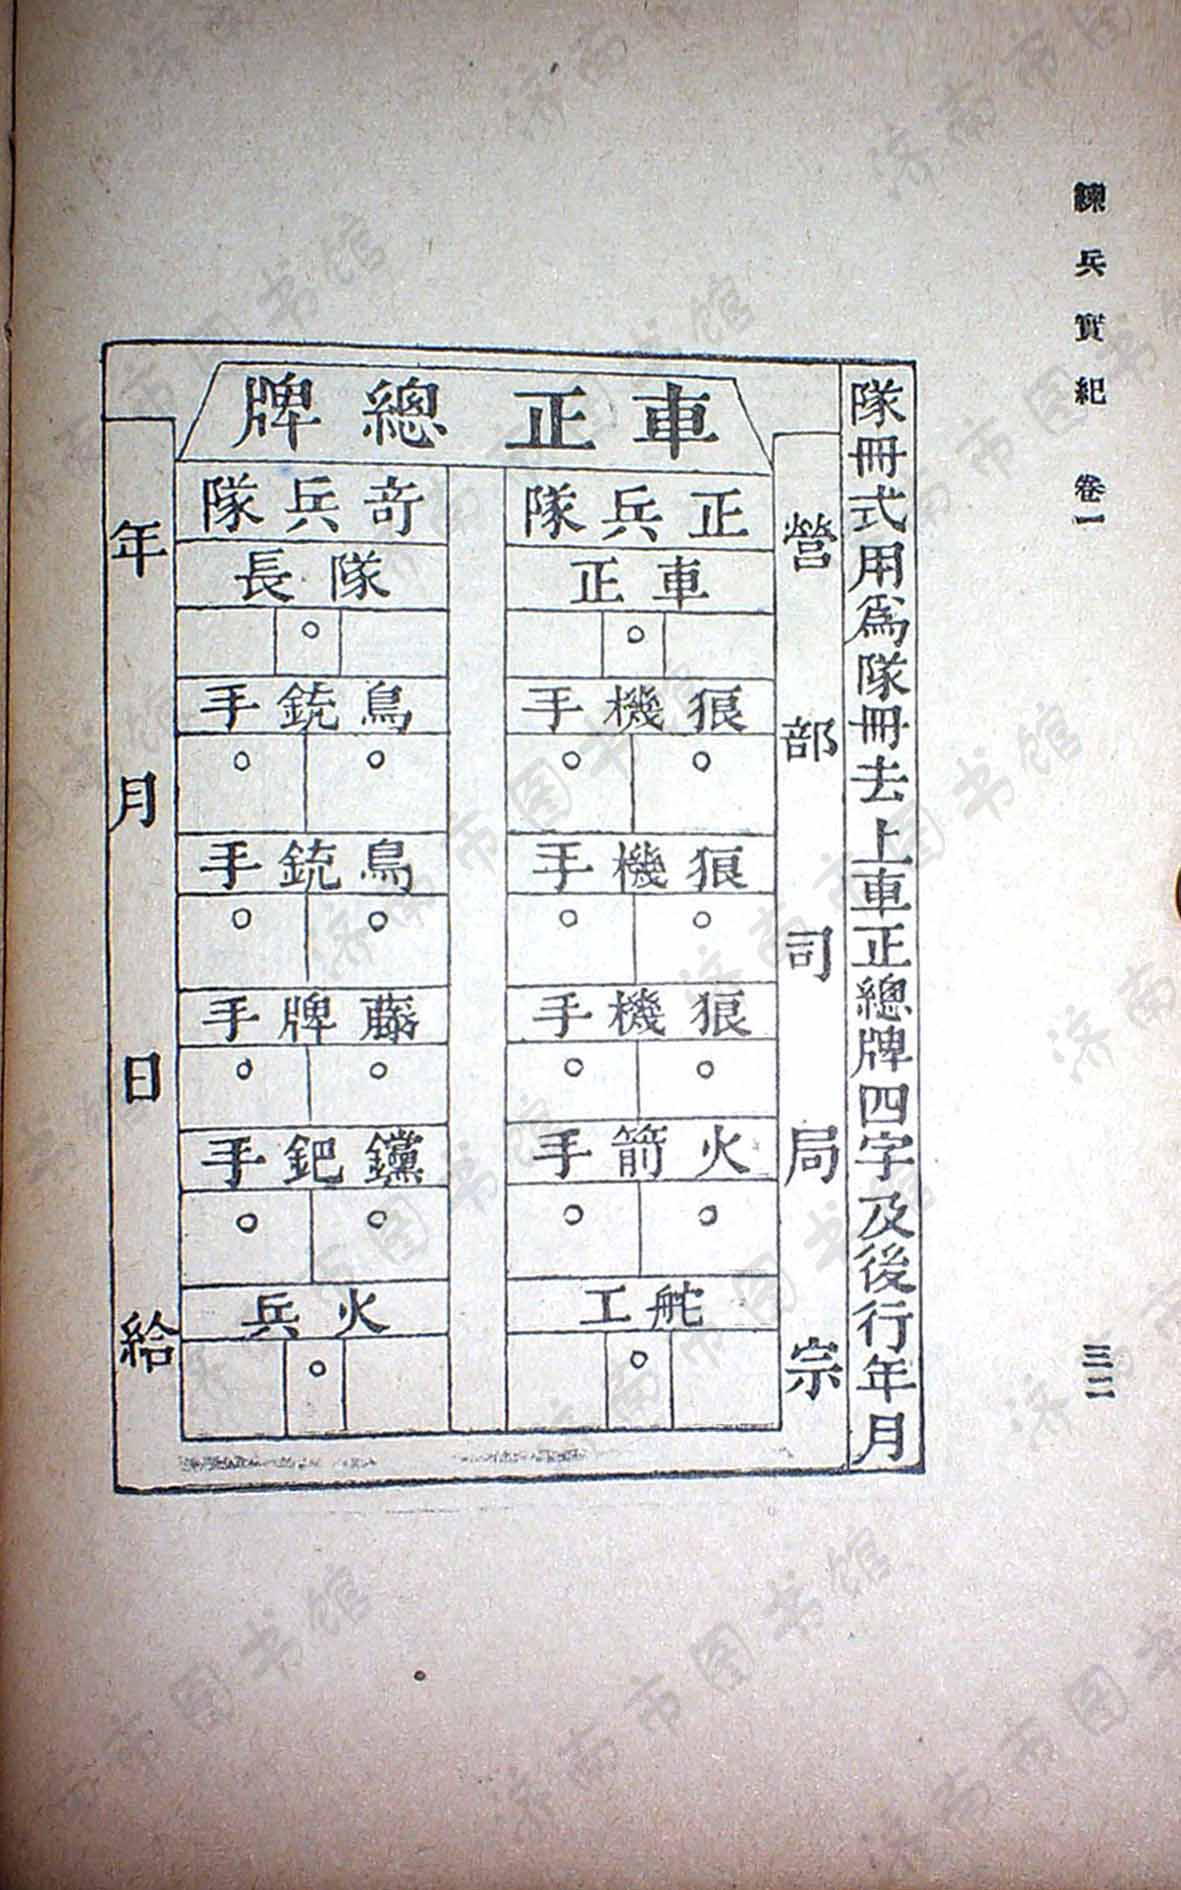 練兵實紀 卷一
三二
隊冊式用爲隊冊去上車正總牌四字及後行年月
車正總牌
營部司局宗
正兵隊
車正
狼機手
狼機手
狼機手
火箭手
舵工
奇兵隊
隊長
鳥銃手
鳥銃手
藤牌手
钂鈀手
火兵
年月日給
济南市图书馆